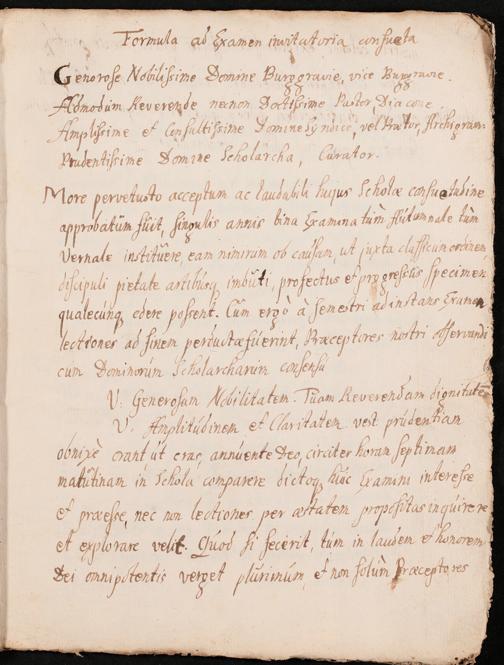 Formula ad Examen invitatoria consueta
Generose Nobilissime Domine Burggravie, vice Burggravie.
Admodum Reverende necnon Doctissime Pastor, Diacone.
Amplissime et Consultissime Domine Syndice, vel Prætor, Archigram:
Prudentissime Domine Scholarcha, Curator.
More pervetusto acceptum ac laudabili hujus Scholæ consuetudine
approbatum fuit, singulis annis bina Examina tùm Autumnale tùm
Vernale instituere, eam nimirum ob causam, ut juxta classicum ordinem
discipuli pietate artibusq imbuti, profectus et progressus specimen
qualecunq edere possent. Cum ergò à semestri ad instans Examen
lectiones ad finem perductæ fuerint, Præceptores nostri observandi
cum Dominorum Scholarcharum consensu
V: Generosam Nobilitatem. Tuam Reverendam dignitatē
V. Amplitudinem et Claritatem vest prudentiam
obnixè orant ut cras, annuente Deo, circiter horam septimam
matutinam in Schola comparere dictoq huic Examini interesse
et præesse, nec non lectiones per æstatem propositas inquirere
et explorare velit. Quod si fecerit, tùm in laudem et honorem
Dei omnipotentis verget plurimùm, et non solùm Præceptores